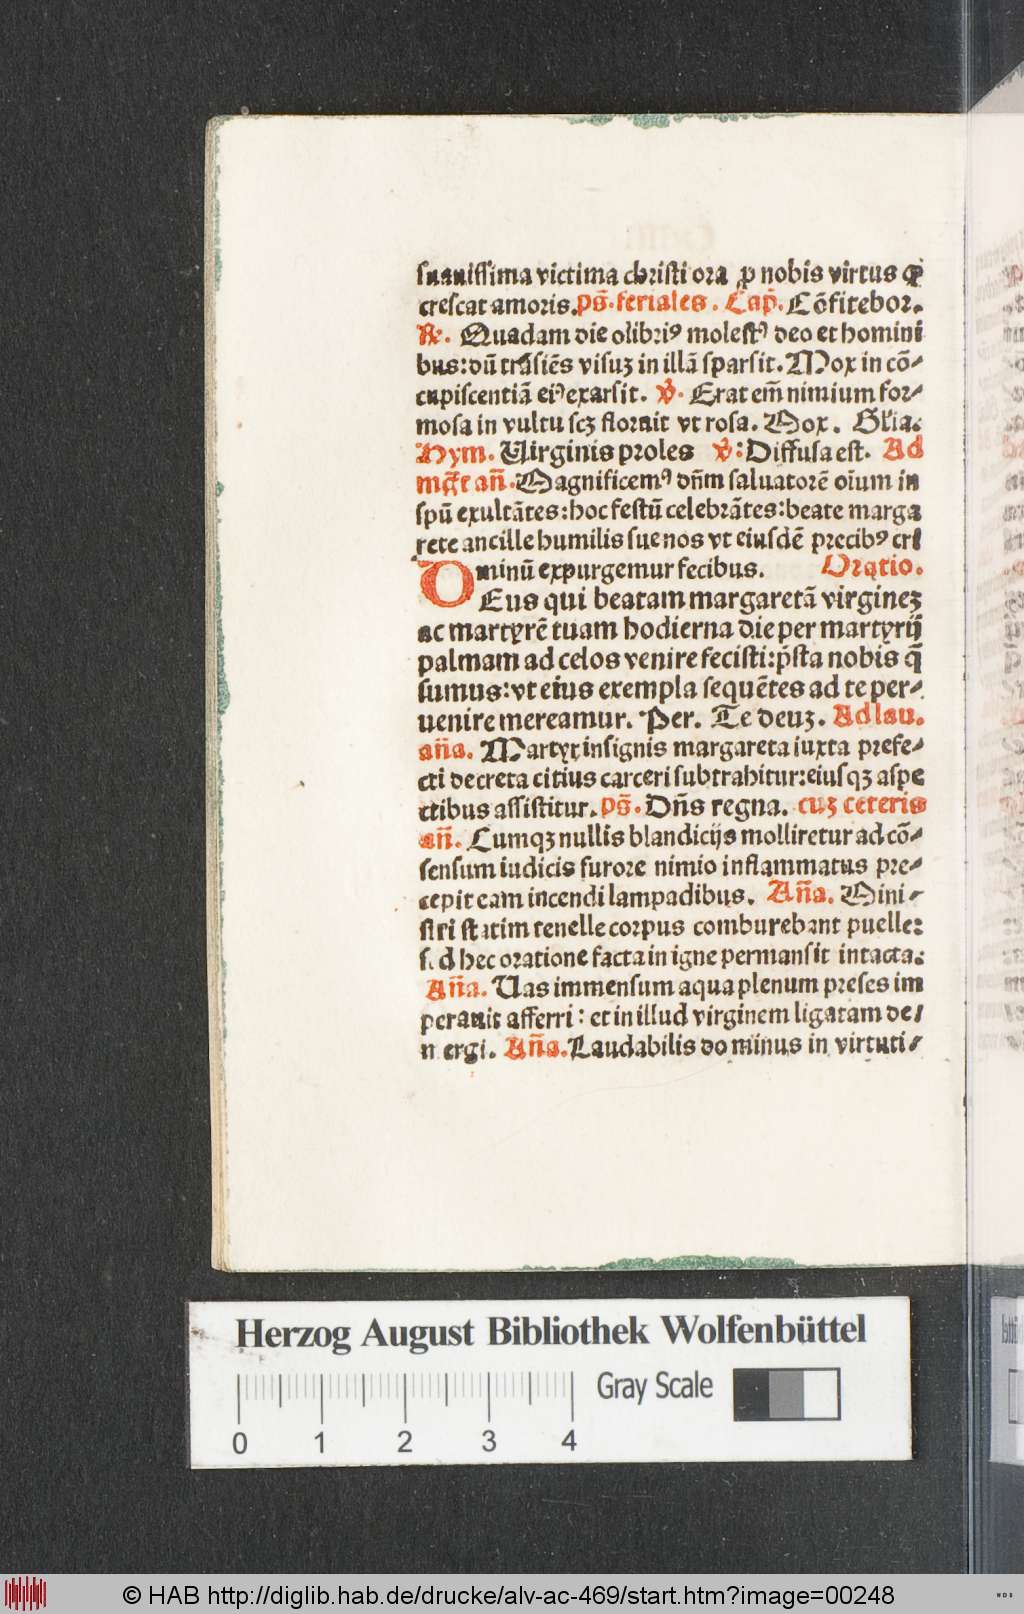 suauissima victima christi ora ꝓ nobis virtus ꝙ
crescat amoris. ps̄. feriales. Cap̄. Cōfitebor.
℟. Quadam die olibriꝰ molestꝰ deo et homini
bus: dū trāsiēs visuꝫ in illā sparsit. Mox in cō⸗
cupiscentiā eiꝰ exarsit. ℣. Erat em̄ nimium for⸗
mosa in vultu scꝫ floruit vt rosa. Mox. Gl̄ia.
Hym. Uirginis proles ℣: Diffusa est. Ad
mḡt an̄. Magnificemꝰ dn̄m saluatorē oīum in
spū exultātes: hoc festū celebrātes: beate marga
rete ancille humilis sue nos vt eiusdē precibꝰ cri
minū expurgemur fecibus. Oratio.
DEus qui beatam margaretā virgineꝫ
ac martyrē tuam hodierna die per martyrij
palmam ad celos venire fecisti: p̄sta nobis q̄
sumus: vt eius exempla sequētes ad te per⸗
uenire mereamur. Per. Te deuꝫ. Ad lau.
an̄a. Martyr insignis margareta iuxta prefe⸗
cti decreta citius carceri subtrahitur: eiusqꝫ aspe
ctibus assistitur. ps̄. Dn̄s regna. cuꝫ ceteris
an̄. Cumqꝫ nullis blandicijs molliretur ad cō⸗
sensum iudicis furore nimio inflammatus pre⸗
cepit eam incendi lampadibus. An̄a. Mini⸗
stri statim tenelle corpus comburebant puelle:
s. d hec oratione facta in igne permansit intacta.
An̄a. Uas immensum aqua plenum preses im
perauit afferri: et in illud virginem ligatam de⸗
n ergi. An̄a. Laudabilis dominus in virtuti⸗
Herzog August Bibliothek Wolfenbüttel
Gray Scale
0 1 2 3 4
© HAB http://diglib.hab.de/drucke/alv-ac-469/start.htm?image=00248